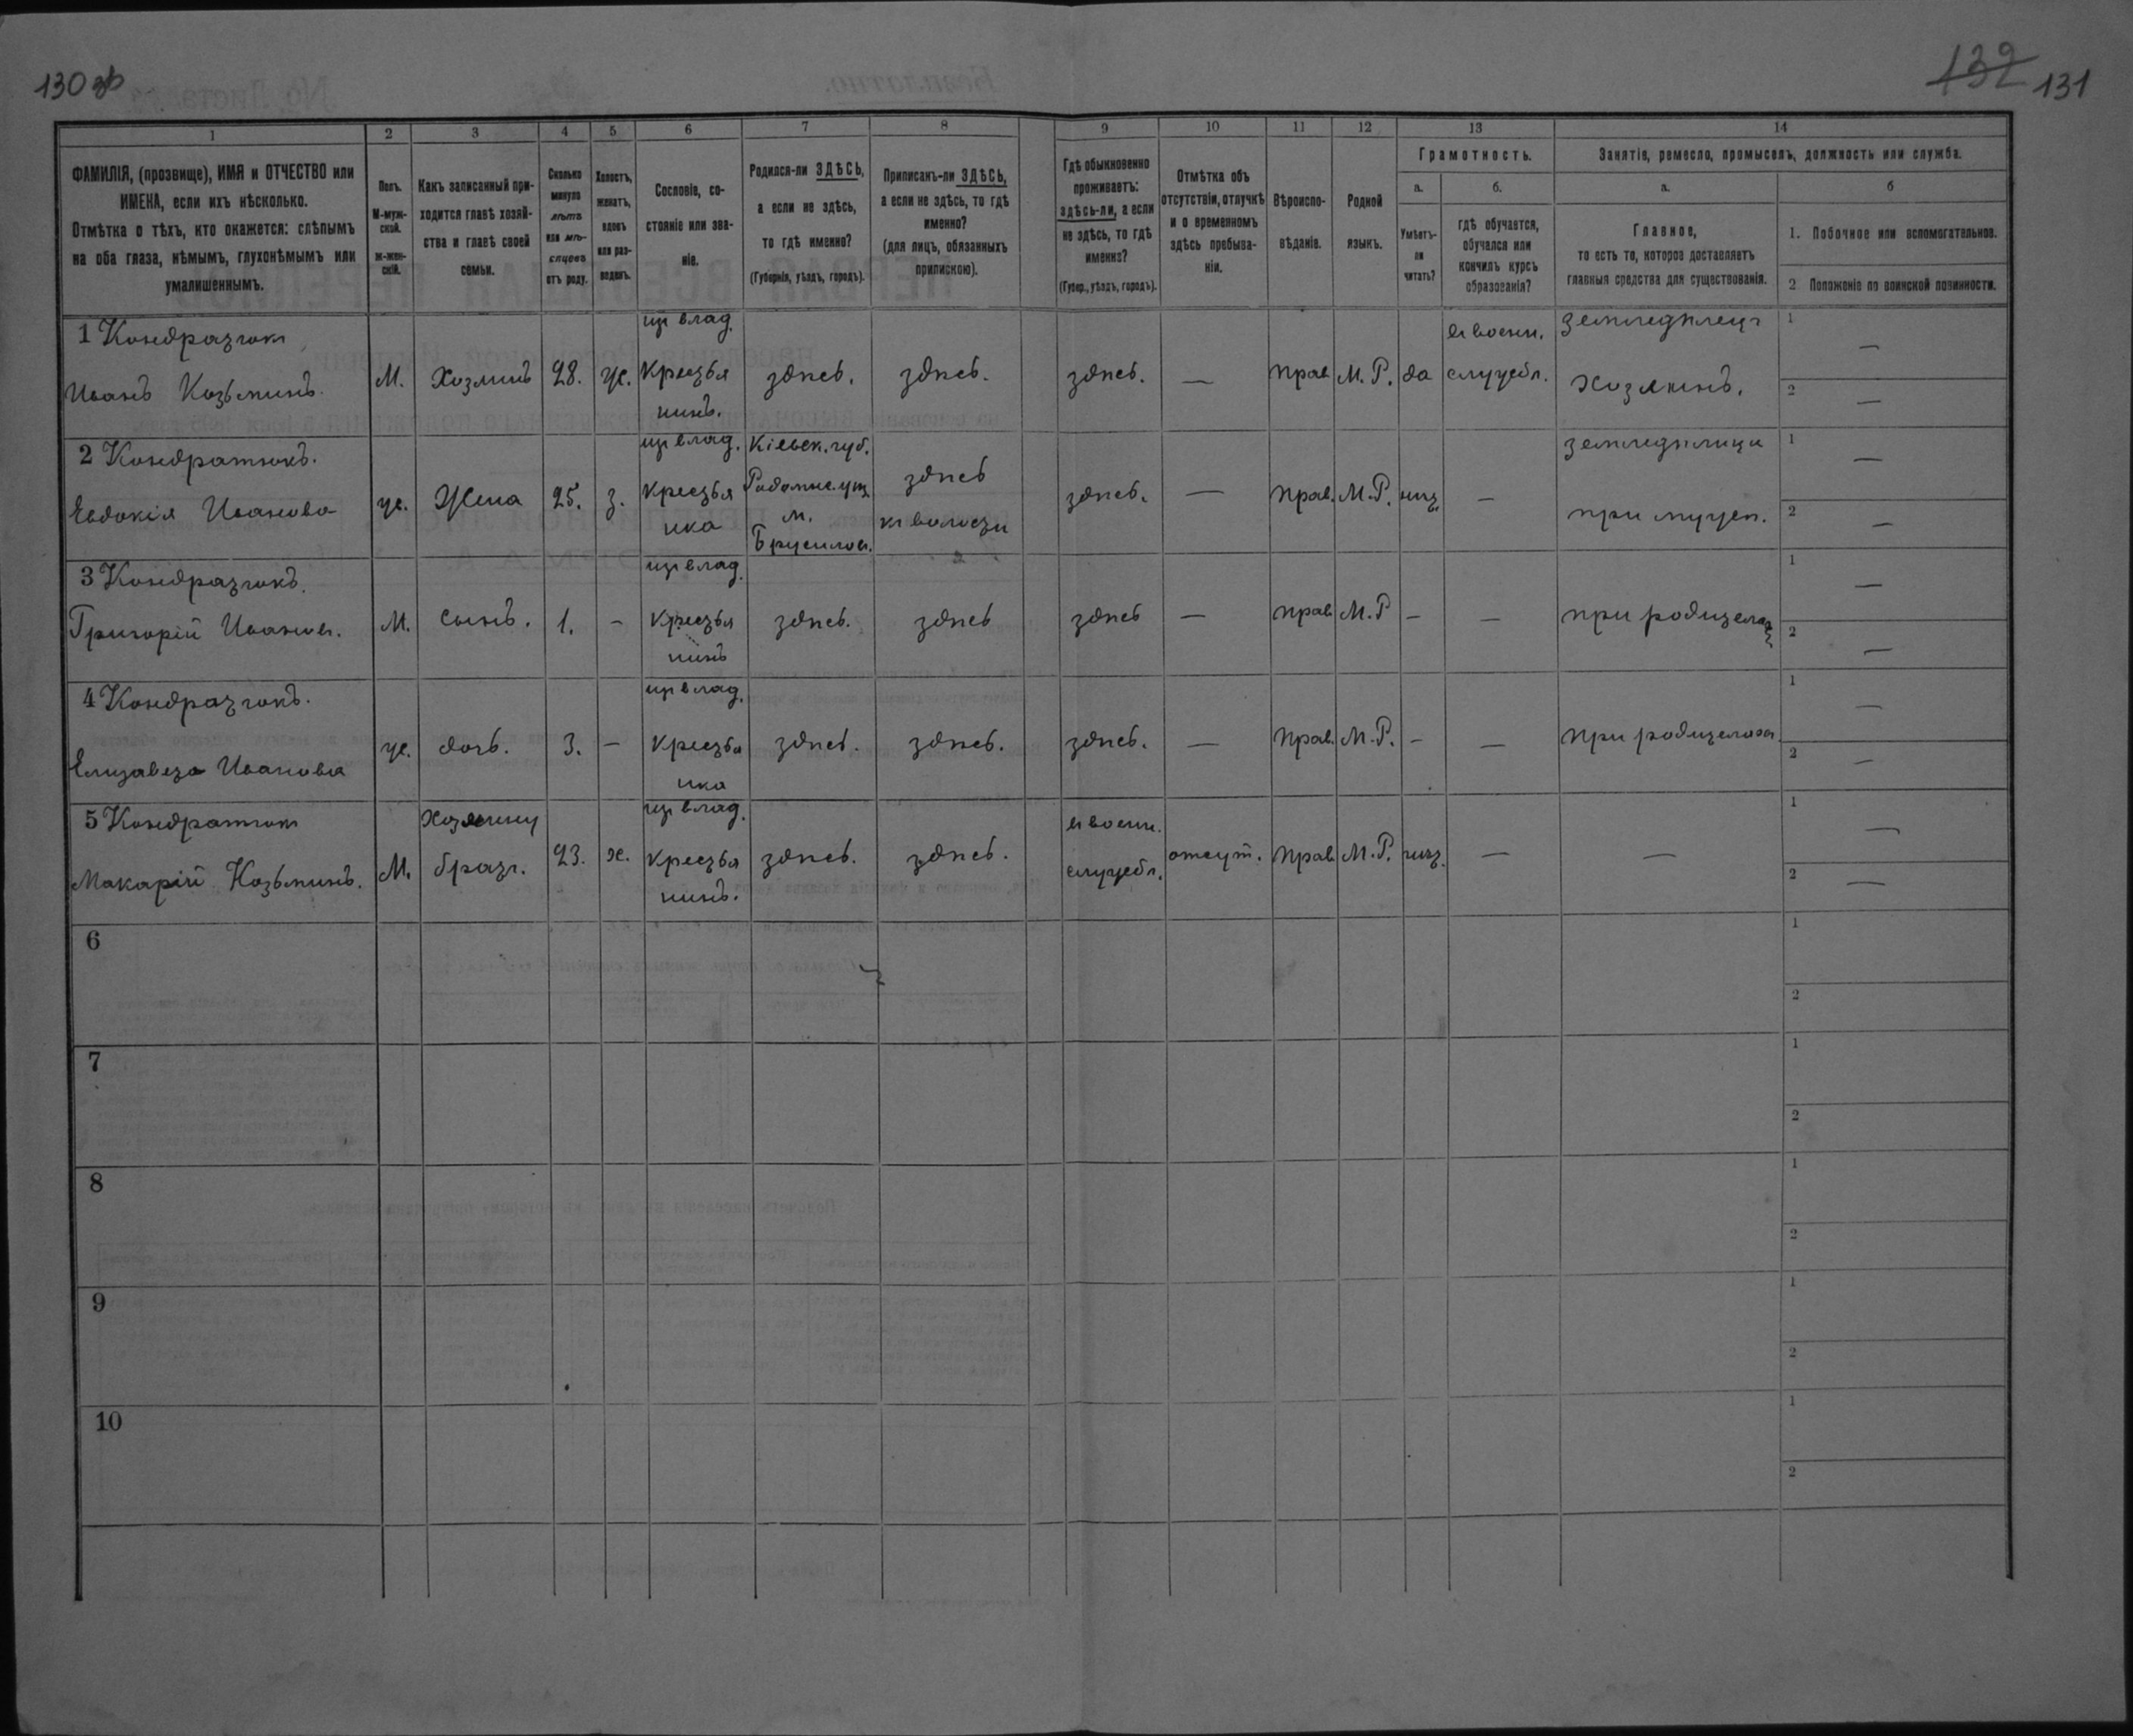 130 об
132 131
1 2 3 4 5 6 7 8 9 10 11 12 13 14
ФАМИЛІЯ, (прозвище), ИМЯ и ОТЧЕСТВО или
ИМЕНА, если ихъ нѣсколько.
Отмѣтка о тѣхъ, кто окажется: слѣпымъ
на оба глаза, нѣмымъ, глухонѣмымъ или
умалишеннымъ.
Полъ.
М-муж-
ской.
Ж-жен-
скій.
Какъ записанный при-
ходится главѣ хозяй-
ства и главѣ своей
семьи.
Сколько
минуло
лѣтъ
или мѣ-
сяцевъ
отъ роду.
Холостъ,
женатъ,
вдовъ
или раз-
веденъ.
Сословіе, со-
стояніе или зва-
ніе.
Родился-ли ЗДѢСЬ,
а если не здѣсь,
то гдѣ именно?
(Губернія, уѣздъ, городъ).
Приписанъ-ли ЗДѢСЬ,
а если не здѣсь, то гдѣ
именно?
(для лицъ, обязанныхъ
припискою).
Гдѣ обыкновенно
проживаетъ:
здѣсь-ли, а если
не здѣсь, то гдѣ
именно?
(Губер., уѣздъ, городъ).
Отмѣтка объ
отсутствіи, отлучкѣ
и о временномъ
здѣсь пребыва-
ніи.
Вѣроиспо-
вѣданіе.
Родной
языкъ.
Грамотность.
а.
Умѣетъ-
ли
читать?
б.
гдѣ обучается,
обучался или
кончилъ курсъ
образованія?
Занятіе, ремесло, промыселъ, должность или служба.
а.
Главное,
то есть то, которое доставляетъ
главныя средства для существованія.
б
1. Побочное или вспомогательное.
2 Положеніе по воинской повинности.
1 Кондратюкъ
Иванъ Козьминъ.
М. Хозяинъ 28. ж.
из влад.
крестья
нинъ.
здѣсь. здѣсь. здѣсь. — прав М. Р. да
въ военн.
службѣ.
земледѣлецъ
хозяинъ.
1 —
2 —
2 Кондратюкъ.
Евдокія Иванова
ж. Жена 25. з.
из влад.
крестья
нка
Кіевск. губ.
Радомыс. у.
м.
Брусилов.
здѣсь
къ волости
здѣсь. — прав. М. Р. —
земледѣлица
при мужѣ.
1 —
2 —
3 Кондратюкъ.
Григорій Иванов.
М. сынъ. 1. —
из влад.
крестья
нинъ
здѣсь. здѣсь здѣсь — прав М. Р — — при родителях
1 —
2 —
4 Кондратюкъ.
Елизавета Иванова
ж. дочь. 3. —
из влад.
крестья
нка
здѣсь. здѣсь. здѣсь. — прав. М. Р. — — при родителяхъ
1 —
2 —
5 Кондратюкъ
Макарій Козьминъ.
М.
Хозяину
братъ.
23. х.
из влад.
крестья
нинъ.
здѣсь. здѣсь.
въ военн.
службѣ.
отсут. прав М. Р. — —
1 —
2 —
6
1
2
7
1
2
8
1
2
9
1
2
10
1
2